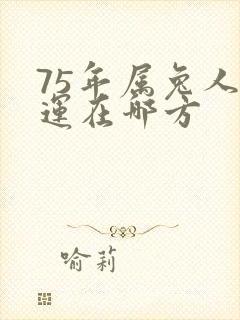 75年属兔人
運在那方
喻莉